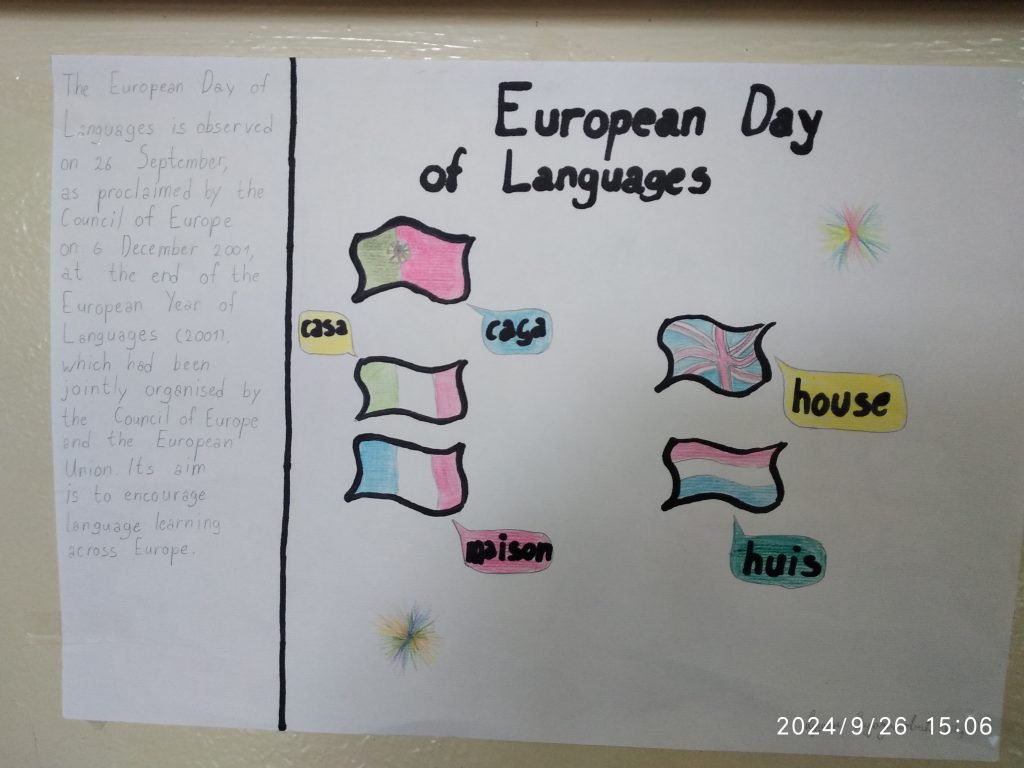 The European Day of
Languages is observed
on 26 September,
as proclaimed by the
Council of Europe
on 6 December 2001,
at the end of the
European Year of
Languages (2001),
which had been
jointly organised by
the Council of Europe
and the European
Union. Its aim
is to encourage
language learning
across Europe.
European Day
of Languages
casa
caça
house
maison
huis
2024/9/26 15:06